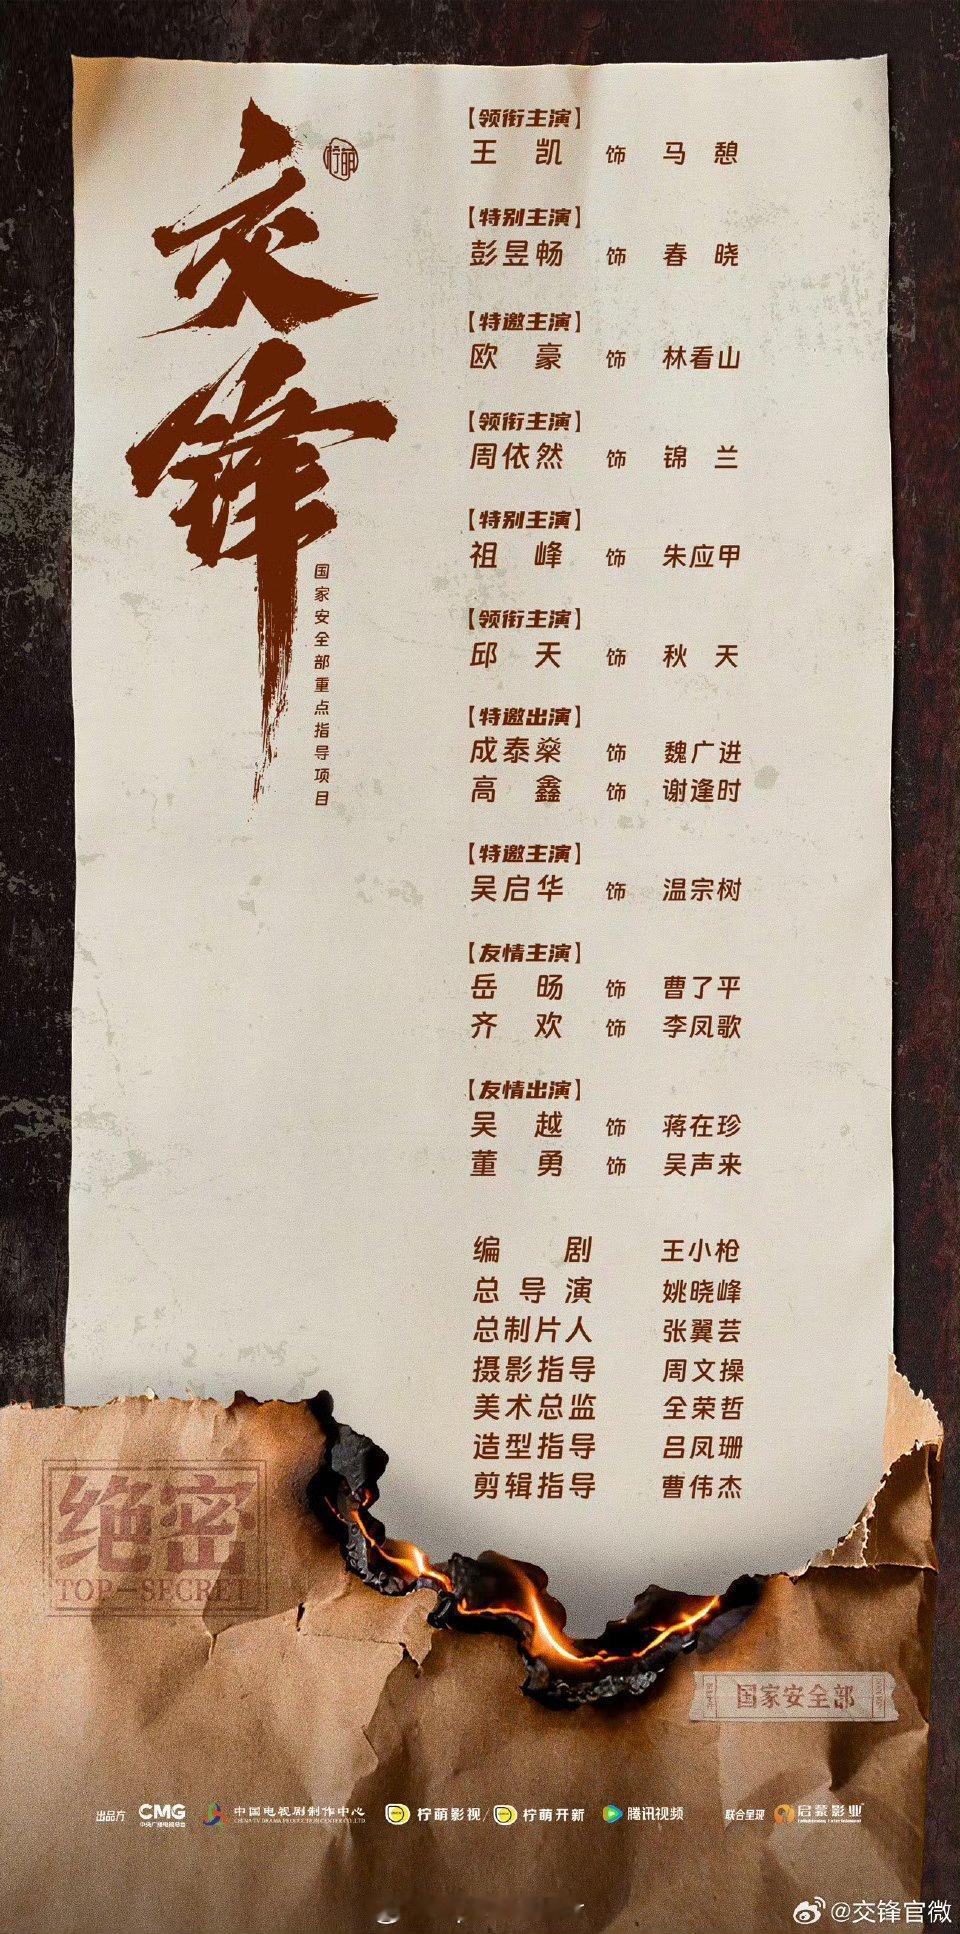 交锋
柠萌
国家安全部重点指导项目
【领衔主演】
王凯 饰 马憩
【特别主演】
彭昱畅 饰 春晓
【特邀主演】
欧豪 饰 林看山
【领衔主演】
周依然 饰 锦兰
【特别主演】
祖峰 饰 朱应甲
【领衔主演】
邱天 饰 秋天
【特邀出演】
成泰燊 饰 魏广进
高鑫 饰 谢逢时
【特邀主演】
吴启华 饰 温宗树
【友情主演】
岳旸 饰 曹了平
齐欢 饰 李凤歌
【友情出演】
吴越 饰 蒋在珍
董勇 饰 吴声来
编剧 王小枪
总导演 姚晓峰
总制片人 张翼芸
摄影指导 周文操
美术总监 全荣哲
造型指导 吕凤珊
剪辑指导 曹伟杰
绝密
TOP-SECRET
国家安全部
出品方 CMG 中央广播电视总台 中国电视剧制作中心 CHINA TV DRAMA PRODUCTION CENTER CO.,LTD 柠萌影视/柠萌开新 腾讯视频 联合呈现 启蒙影业 Enlightening Entertainment
@交锋官微